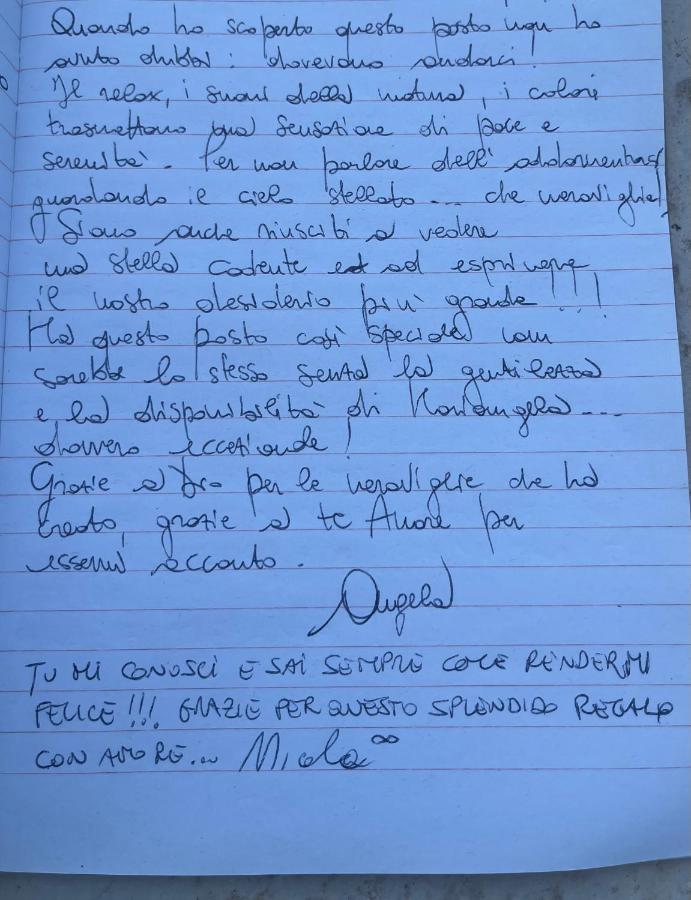 Quando ho scoperto questo posto non ho
avuto dubbi: dovevamo andarci!
Il relax, i suoni della natura, i colori
trasmettono una sensazione di pace e
serenità. Per non parlare dell'addormentarsi
guardando il cielo stellato... che meraviglia!
Siamo anche riusciti a vedere
una stella cadente ed ad esprimere
il nostro desiderio più grande!!!
Ma questo posto così speciale non
sarebbe lo stesso senza la gentilezza
e la disponibilità di Mariangela...
davvero eccezionale!
Grazie a Dio per le meraviglie che ha
creato, grazie a te Amore per
essermi accanto.
Angela
TU MI CONOSCI E SAI SEMPRE COME RENDERMI
FELICE!!! GRAZIE PER QUESTO SPLENDIDO REGALO
CON AMORE...